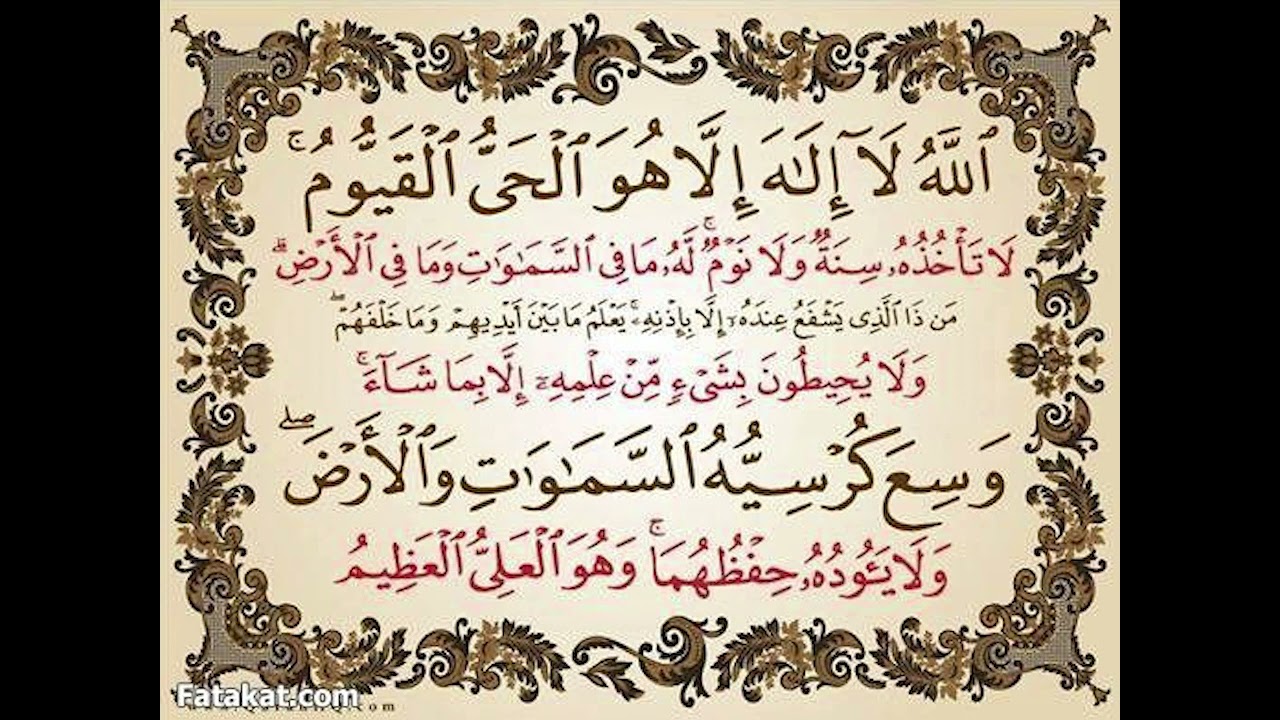 ٱللَّهُ لَآ إِلَـٰهَ إِلَّا هُوَ ٱلْحَىُّ ٱلْقَيُّومُ ۚ
لَا تَأْخُذُهُۥ سِنَةٌ وَلَا نَوْمٌ ۚ لَّهُۥ مَا فِى ٱلسَّمَـٰوَٰتِ وَمَا فِى ٱلْأَرْضِ ۗ
مَن ذَا ٱلَّذِى يَشْفَعُ عِندَهُۥٓ إِلَّا بِإِذْنِهِۦ ۚ يَعْلَمُ مَا بَيْنَ أَيْدِيهِمْ وَمَا خَلْفَهُمْ ۖ
وَلَا يُحِيطُونَ بِشَىْءٍ مِّنْ عِلْمِهِۦٓ إِلَّا بِمَا شَآءَ ۚ
وَسِعَ كُرْسِيُّهُ ٱلسَّمَـٰوَٰتِ وَٱلْأَرْضَ ۖ
وَلَا يَـُٔودُهُۥ حِفْظُهُمَا ۚ وَهُوَ ٱلْعَلِىُّ ٱلْعَظِيمُ
Fatakat.com